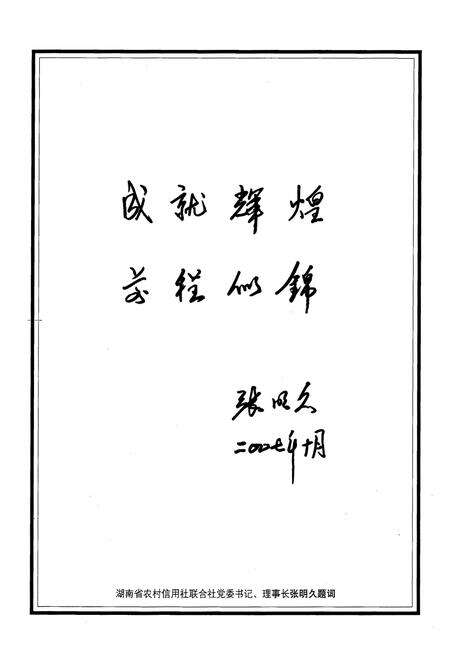 成就輝煌
前程似錦
张明久
二00七年十月
湖南省农村信用社联合社党委书记、理事长张明久题词